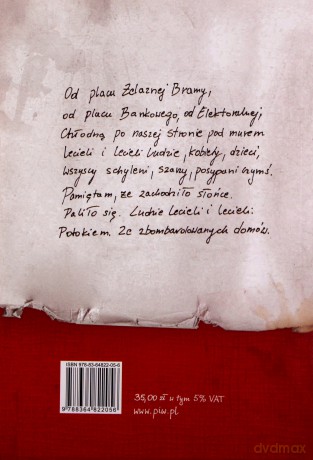 Od placu Żelaznej Bramy,
od placu Bankowego, od Elektoralnej,
Chłodną po naszej stronie pod murem
lecieli i lecieli ludzie, kobiety, dzieci,
wszyscy schyleni, szarzy, posypani czymś.
Pamiętam, że zachodziło słońce.
Paliło się. Ludzie lecieli i lecieli.
Potokiem. Ze zbombardowanych domów.
ISBN 978-83-64822-05-6
9 788364 822056
35,00 zł w tym 5% VAT
www.piw.pl
dvdmax